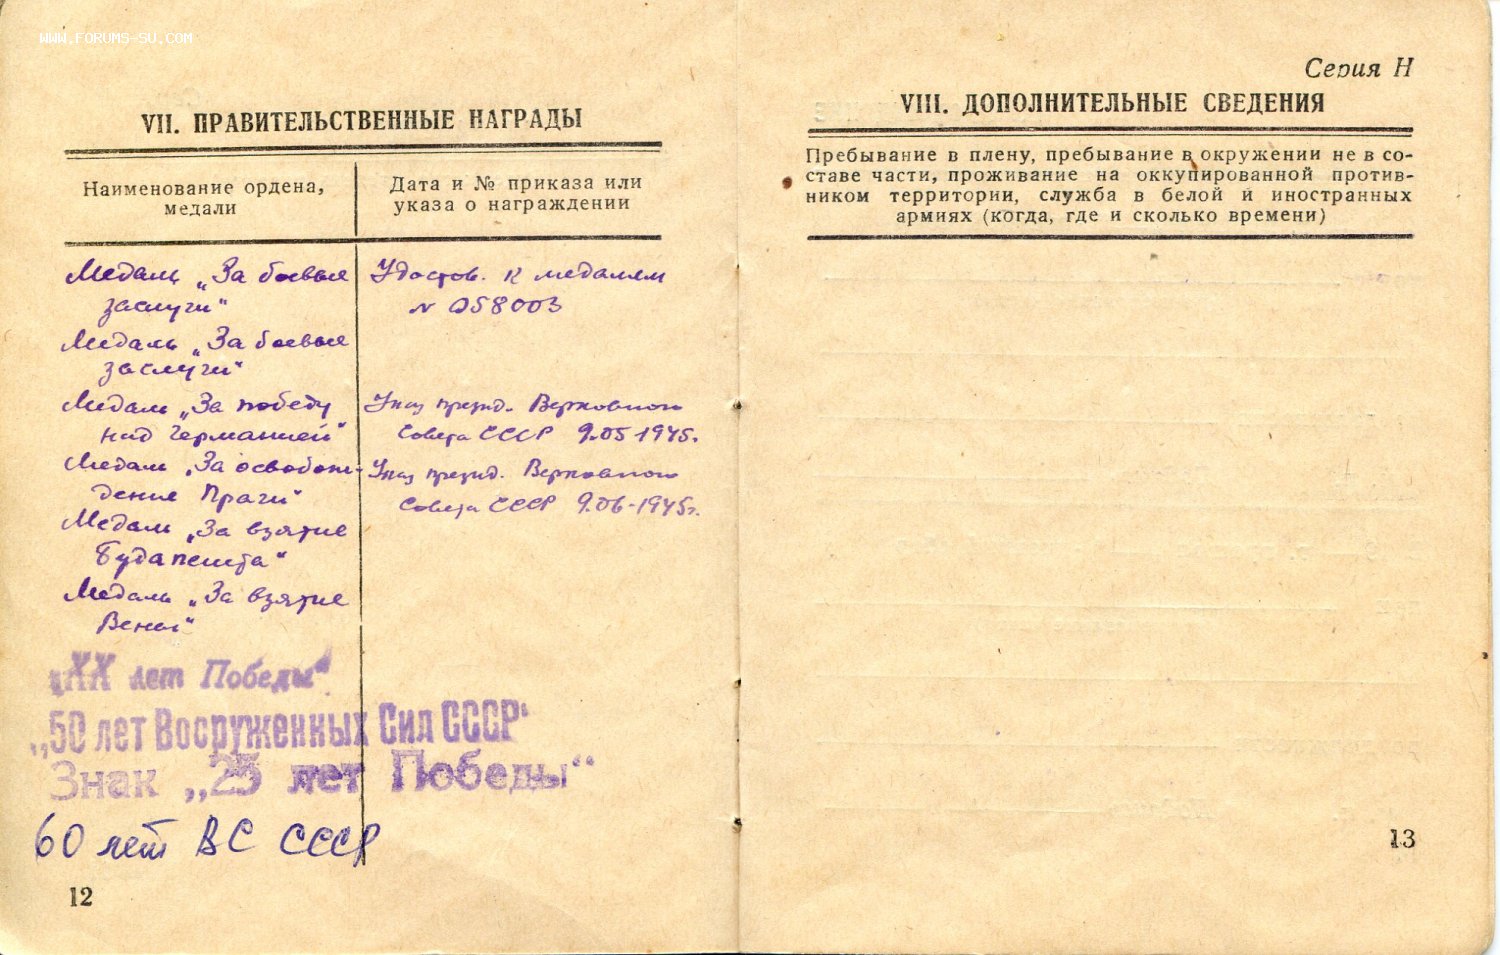 WWW.FORUMS-SU.COM
VII. ПРАВИТЕЛЬСТВЕННЫЕ НАГРАДЫ
Наименование ордена,
медали
Дата и № приказа или
указа о награждении
Медаль „За боевые
заслуги"
Удостов. к медалям
N 058003
Медаль „За боевые
заслуги"
Медаль „За победу
над Германией"
Указ презид. Верховного
Совета СССР 9.05-1945.
Медаль „За освобож-
дение Праги"
Указ презид. Верховного
Совета СССР 9.06-1945г.
Медаль „За взятие
Будапешта"
Медаль „За взятие
Вены"
„XX лет Победы"
„50 лет Вооруженных Сил СССР"
Знак „25 лет Победы"
60 лет ВС СССР
12
Серия Н
VIII. ДОПОЛНИТЕЛЬНЫЕ СВЕДЕНИЯ
Пребывание в плену, пребывание в окружении не в со-
ставе части, проживание на оккупированной против-
ником территории, служба в белой и иностранных
армиях (когда, где и сколько времени)
13